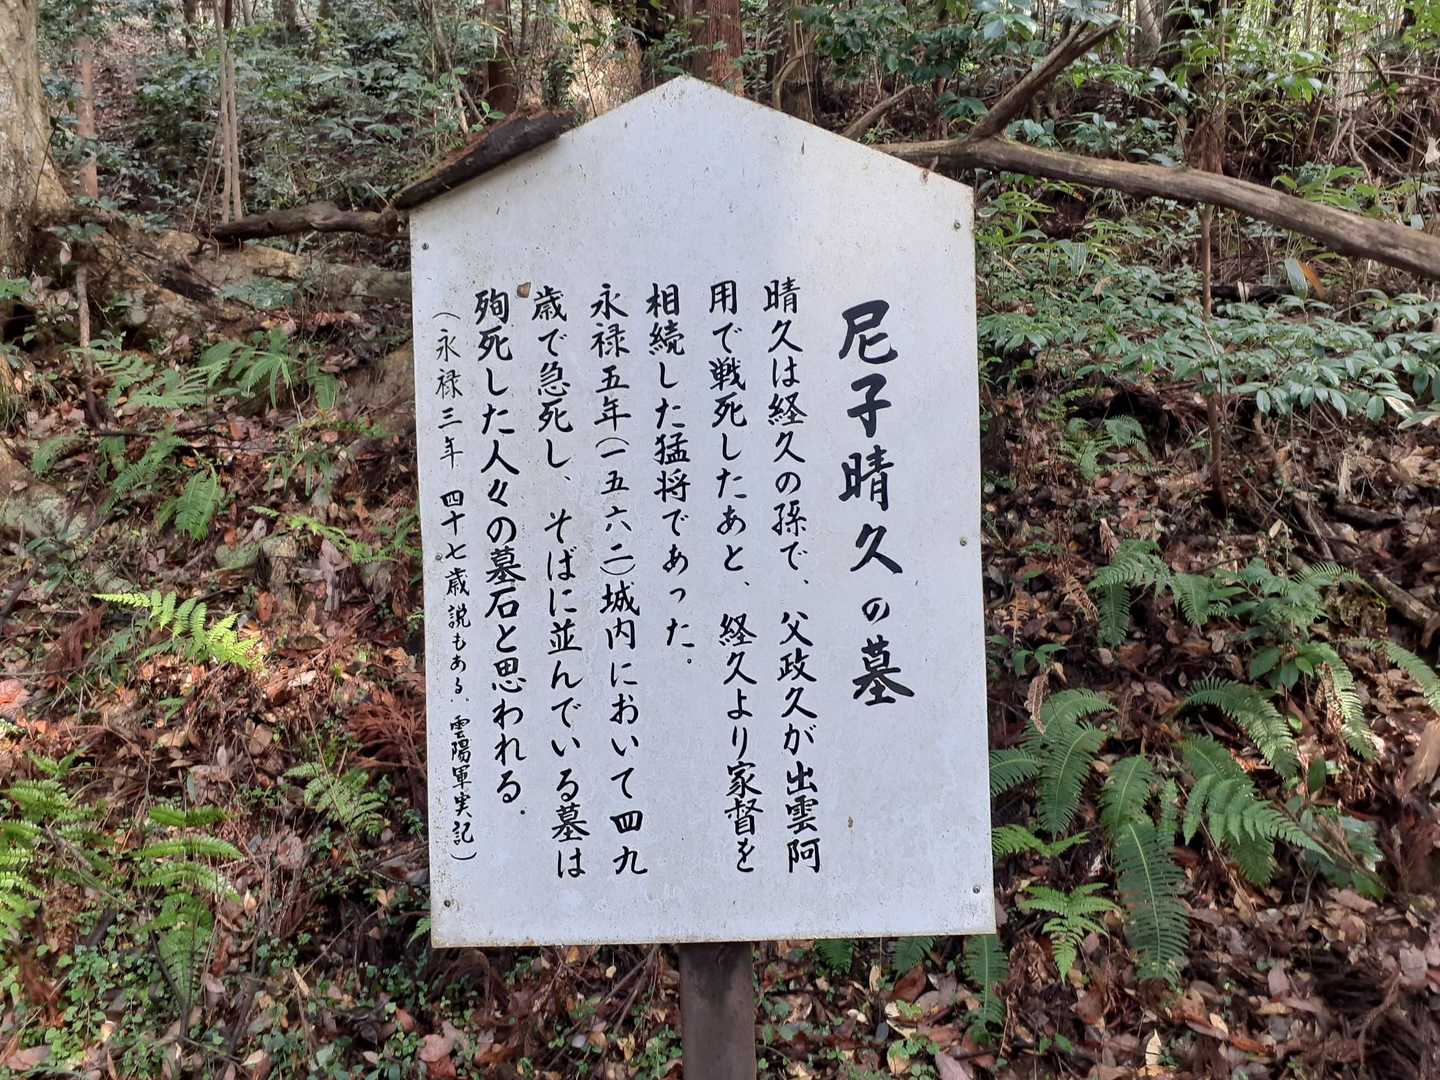 尼子晴久の墓
晴久は経久の孫で、父政久が出雲阿
用で戦死したあと、経久より家督を
相続した猛将であった。
永禄五年(一五六二)城内において四九
歳で急死し、そばに並んでいる墓は
殉死した人々の墓石と思われる.
(永禄三年 四十七歳説もある、雲陽軍実記)